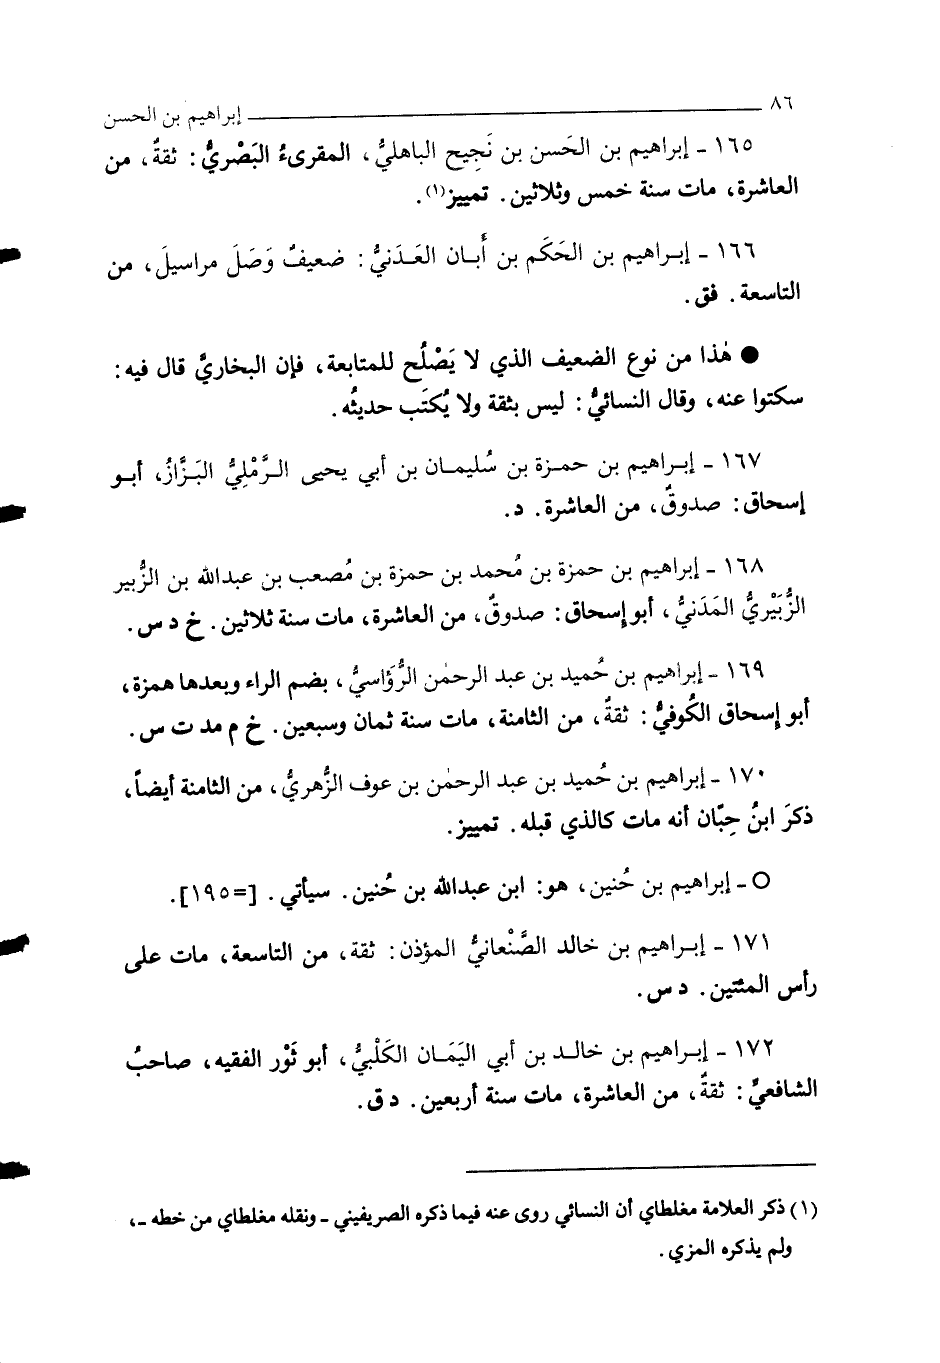 ٨٦ إبراهيم بن الحسن
١٦٥ ـ إبراهيم بن الحَسن بن نَجِيح الباهليُّ، المقرىءُ البَصْريُّ: ثقةٌ، من
العاشرة، مات سنة خمس وثلاثين. تمييز(١).
١٦٦ ـ إبـراهيم بن الحَكَم بن أَبـان العَـدَنيُّ: ضعيفٌ وَصَلَ مراسيلَ، من
التاسعة. فق.
● هٰذا من نوع الضعيف الذي لا يَصْلُح للمتابعة، فإن البخاريَّ قال فيه:
سكتوا عنه، وقال النسائيُّ: ليس بثقة ولا يُكتَب حديثُه.
١٦٧ ـ إبـراهيم بن حمـزة بن سُليمـان بن أبي يحيى الـرَّمْلِيُّ البَـزَّازُ، أبـو
إسحاق: صدوقٌ، من العاشرة. د.
١٦٨ ـ إبراهيم بن حمزة بن مُحمد بن حمزة بن مُصعب بن عبدالله بن الزُّبير
الزُّبَيْريُّ المَدَنيُّ، أبو إسحاق: صدوقٌ، من العاشرة، مات سنة ثلاثين. خ د س.
١٦٩ ـ إبراهيم بن حُميد بن عبد الرحمٰن الرُّؤَاسيُّ، بضم الراء وبعدها همزة،
أبو إسحاق الكُوفيُّ: ثقةٌ، من الثامنة، مات سنة ثمان وسبعين. خ م مد ت س.
١٧٠ ـ إبراهيم بن حُميد بن عبد الرحمٰن بن عوف الزُّهريُّ، من الثامنة أيضاً،
ذكرَ ابنُ حِبَّان أنه مات كالذي قبله. تمييز.
○ ـ إبراهيم بن حُنين، هو: ابن عبدالله بن حُنين. سيأتي. [=١٩٥].
١٧١ ـ إبـراهيم بن خالد الصَّنْعانيُّ المؤذن: ثقة، من التاسعة، مات على
رأس المئتين. د س.
١٧٢ ـ إبـراهيم بن خالـد بن أبي اليَمَـان الكَلْبيُّ، أبو ثَوْر الفقيه، صاحبُ
الشافعيِّ: ثقةٌ، من العاشرة، مات سنة أربعين. د ق.
(١) ذكر العلامة مغلطاي أن النسائي روى عنه فيما ذكره الصريفيني ـ ونقله مغلطاي من خطه ـ،
ولم يذكره المزي.